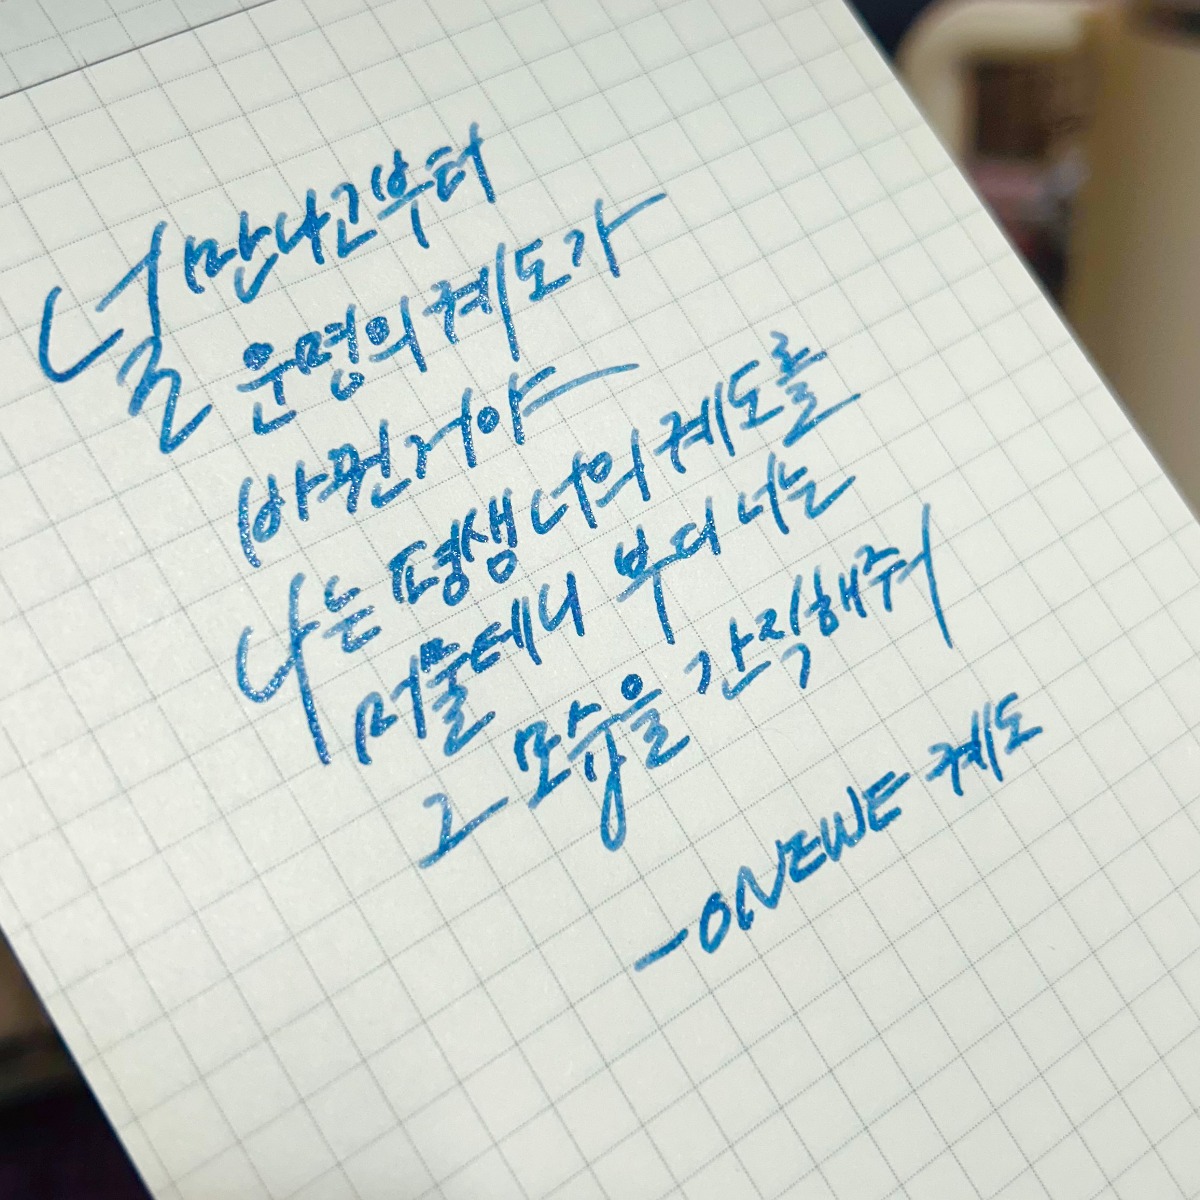 널 만나고부터
운명의 궤도가
바뀐거야
나는 평생 너의 궤도를
머물테니 부디 너는
그 모습을 간직해줘
-ONEWE 궤도